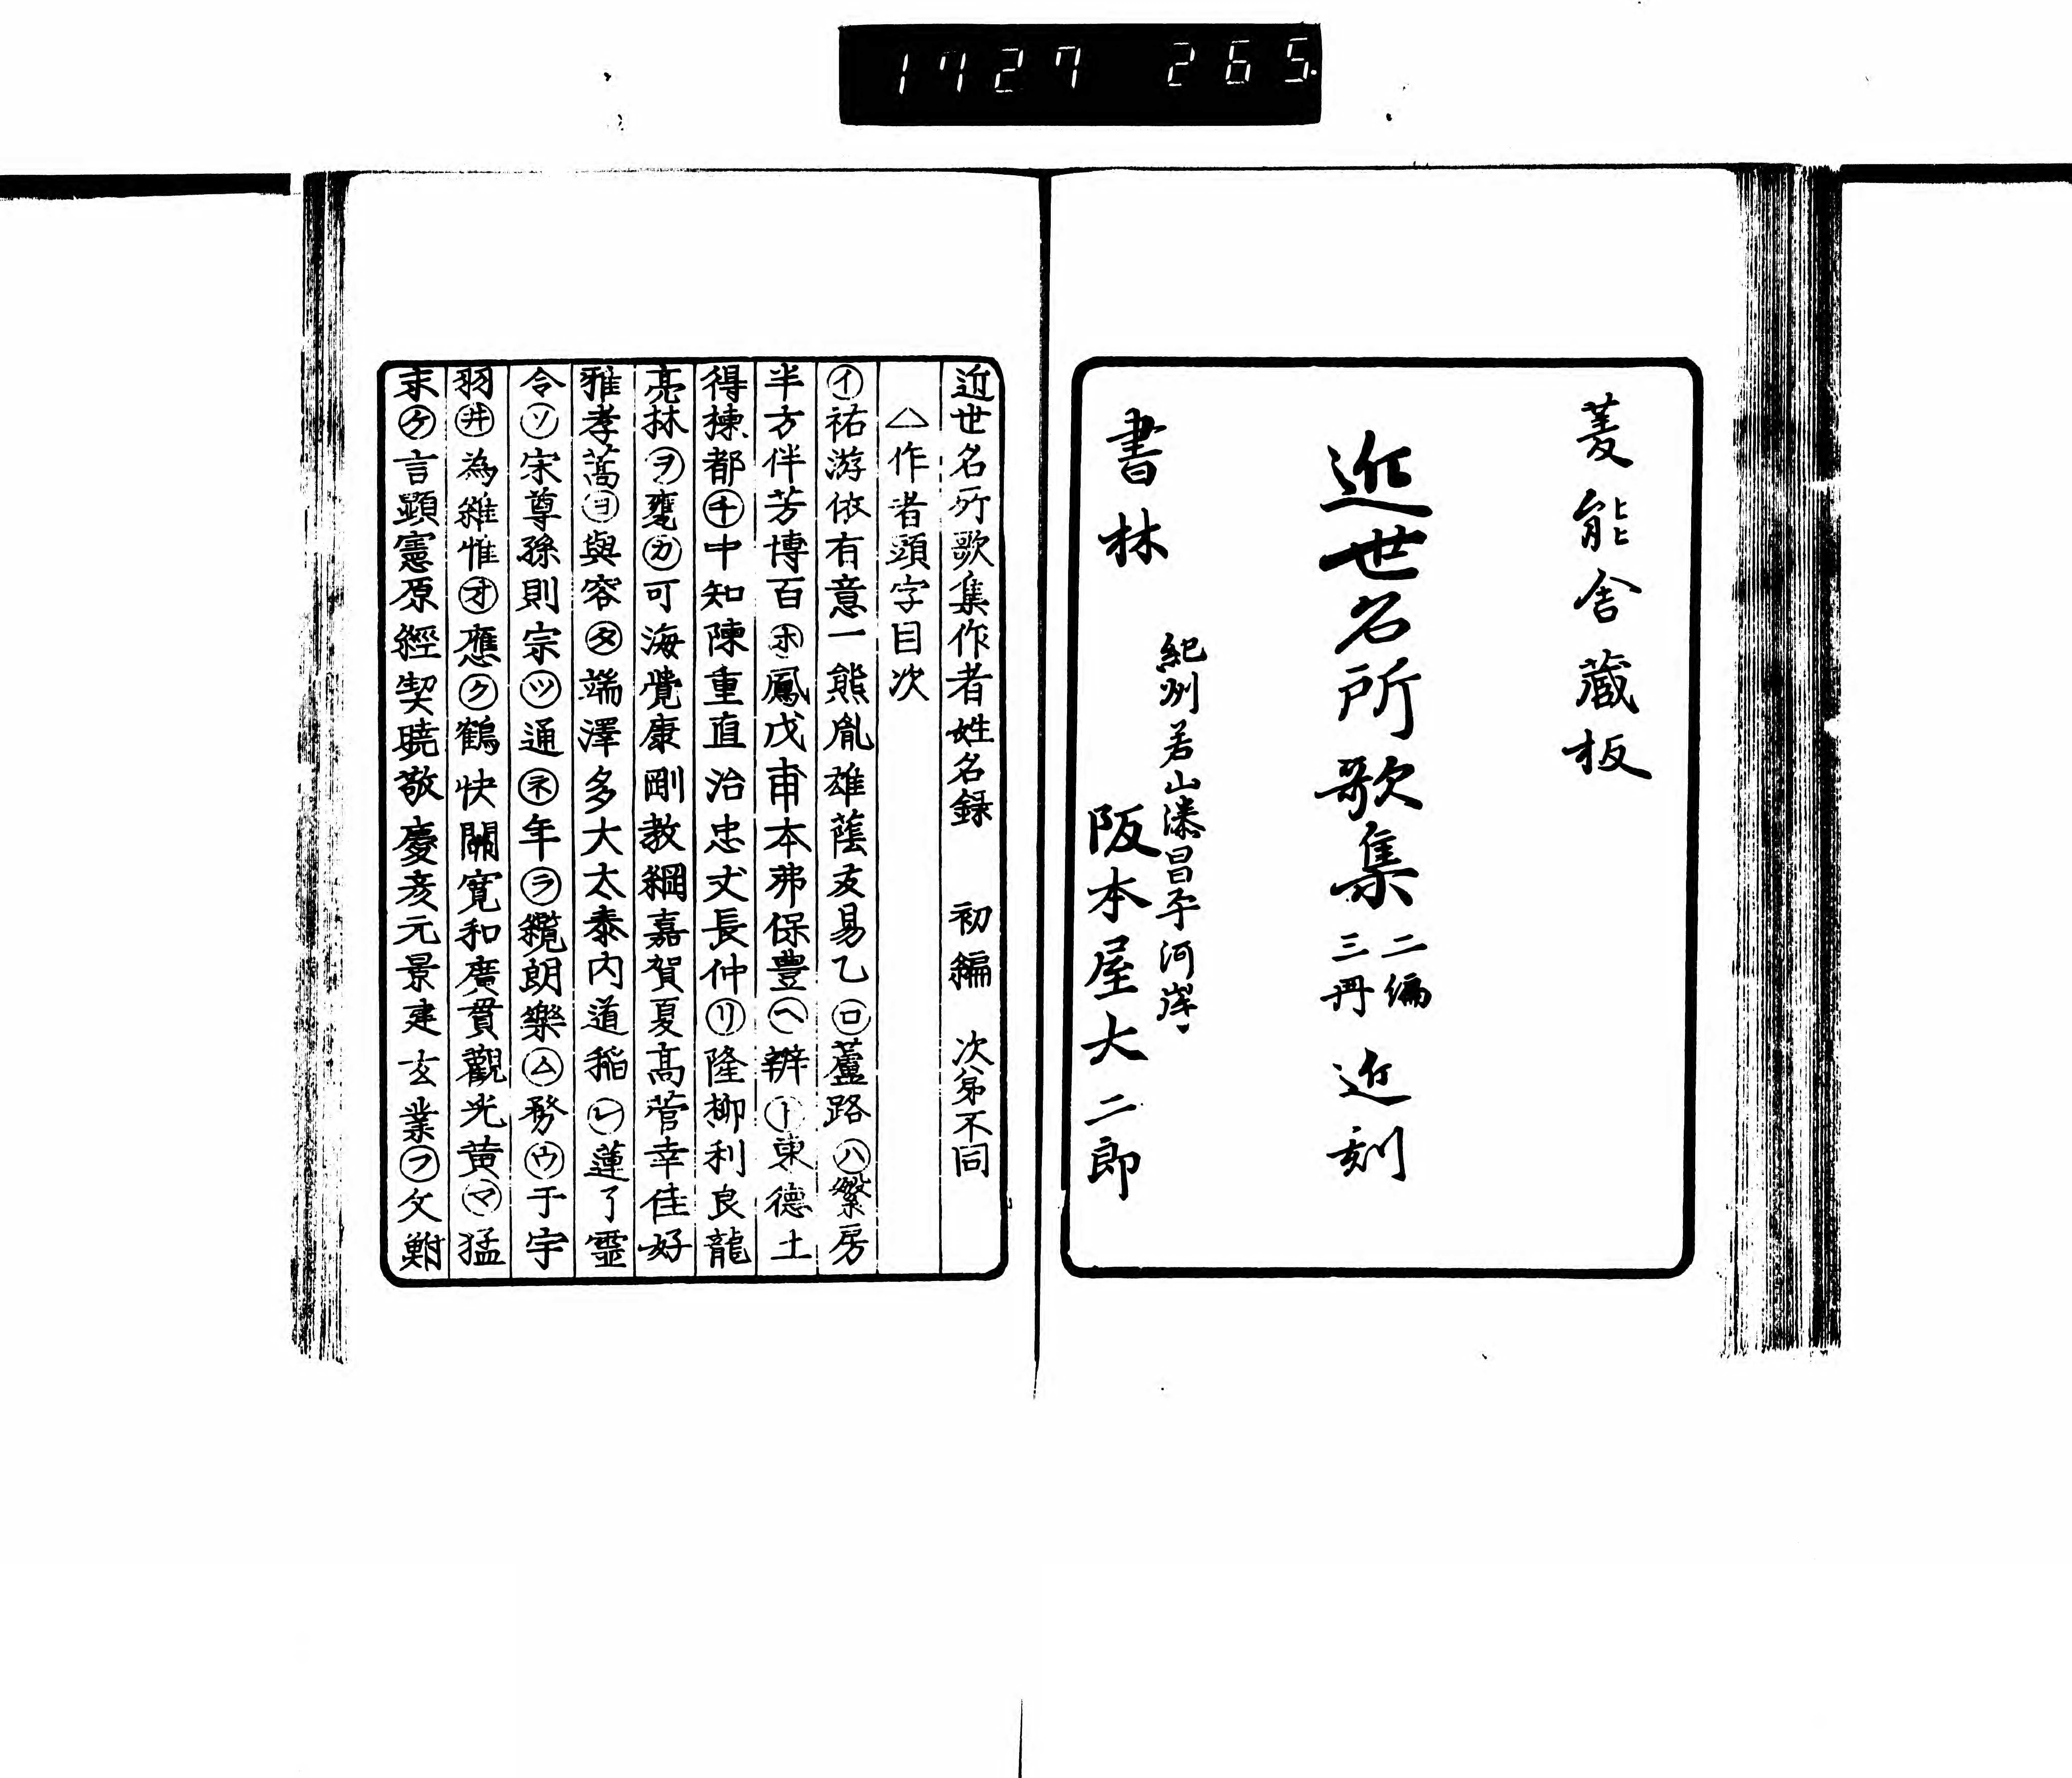 1727 265
菱能舎蔵板
近世名所歌集 二編 三冊 近刻
紀州若山湊昌平河岸
書林 阪本屋大二郎
近世名所歌集作者姓名録 初編 次第不同
△作者頭字目次
㋑祐游依有意一熊胤雄蔭友易乙㋺蘆路㋩繁房
半方伴芳博百㋭鳳戊甫本弗保豊㋬辨㋣東德土
得棟都㋠中知陳重直治忠丈長仲㋷隆柳利良龍
亮林㋾甕㋕可海覺康剛教綱嘉賀夏高菅幸佳好
雅孝蒿㋵與容㋟端澤多大太泰内道稲㋹蓮了霊
令㋞宋尊孫則宗㋡通㋧年㋶纜朗樂㋰務㋒于宇
羽㋼為維惟㋔應㋗鶴快關寛和廣貫觀光黄㋮猛
末㋘言顕憲原經契曉敬慶彦元景建玄業㋫文鮒